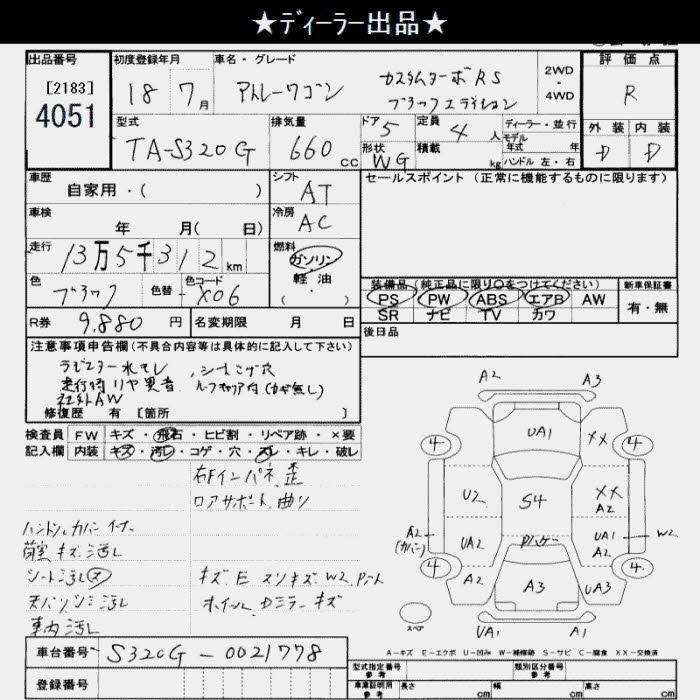 ★ディーラー出品★
出品番号
[2183]
4051
初度登録年月
18 7月
車名・グレード
アトレーワゴン
カスタムターボRS
ブラックエディション
2WD
・
4WD
評価点
R
外装 内装
D D
型式
TA-S320G
排気量
660 cc
ドア 5
定員 4 人
形状 WG
積載 kg
ディーラー・並行
モデル
年式 年
ハンドル 左・右
車歴
自家用・( )
シフト
AT
セールスポイント (正常に機能するものに限ります)
車検
年 月( 日)
冷房
AC
走行
13万5千312 km
燃料
ガソリン
・
軽油
( )
色
ブラック
色替
色コード
X06
装備品(純正品に限り○をつけてください)
PS PW ABS エアB AW
SR ナビ TV カワ
新車保証書
有・無
R券 9,880 円
名変期限 月 日
後日品
注意事項申告欄(不具合内容等は具体的に記入して下さい)
ラジエター水モレ 、シートコゲ穴
走行時リヤ異音 ルーフキャリア付(カギ無し)
社外AW
修復歴 有 [箇所 ]
検査員 FW キズ・飛石・ヒビ割・リペア跡・×要
記入欄 内装 キズ・汚レ・コゲ・穴・スレ・キレ・破レ
右Fインパネ、歪
ロアサポート曲り
ハンドルカバー付
キズ汚レ
シート汚レ大
天バリシミ汚レ
車内汚レ
キズ E スリキズ W2
ホイール、Dミラーキズ
A2 A3
4 UA1 XX 4
U2 S4 XX
A2
A2
(カバー) UA2 UA1
A2 W2
4 A2 A3 UA3 4
スペア UA1 A1
A-キズ E-エクボ U-凹み W-補修跡 S-サビ C-腐食 XX-交換済
車台番号 S320G-0021778
登録番号
型式指定番号
参考
類別区分番号
参考
車庫証明用
参考 長さ cm 幅 cm 高さ cm